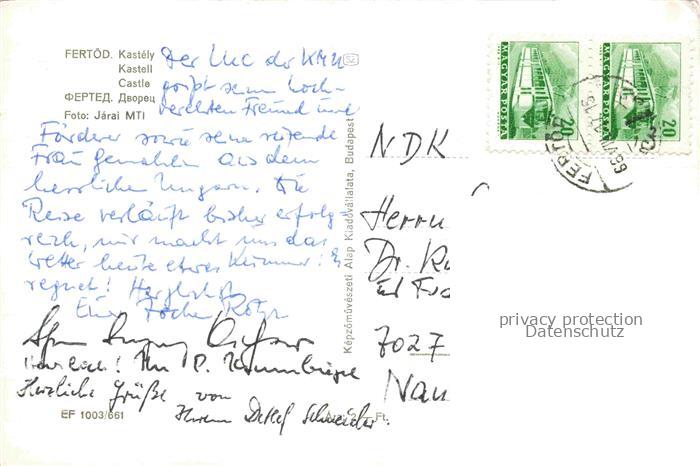 FERTŐD. Kastély
Kastell
Castle
ФЕРТЕД. Дворец
Foto: Járai MTI
Der LMC der KMU
grüßt seinen hoch-
verehrten Freund und
Förderer sowie seine reizende
Frau Gemahlin aus dem
herrlichen Ungarn. Die
Reise verläuft bisher erfolg
reich, nur macht uns das
Wetter heute etwas Kummer: Es
regnet! Herzlichst
Ihr P. Krumbiegel
Herzliche Grüße von
Ihrem Detlef Schneider.
EF 1003/661
Ára: 2,– Ft.
Képzőművészeti Alap Kiadóvállalata, Budapest
MAGYAR POSTA
20
MAGYAR POSTA
20
FERTŐD
NDK
Herrn
Dr.
7027
privacy protection
Datenschutz